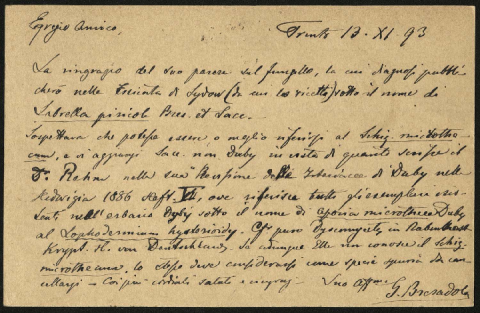 Egregio Amico,
Trento 13. XI 93
La ringrazio del suo parere sul funghillo, la cui diagnosi pubbli-
cherò nelle di Sydow (da cui lo ricetti) sotto il nome di
Labrella pinicola Bres. et Sacc.
Sospettava che potesse essere o meglio riferirsi al Schiz. microthe-
cum, e vi aggiungi Sacc. non Duby in vista di quanto scrisse il
Dr. Rehm nella sua delle di Duby nelle
Hedwigia 1886 Heft. VI, ove riferisce tutti gli esemplari esi-
stenti nell'erbario Duby sotto il nome di Aporia microtheca Duby
al Lophodermium hysterioides. Cfr. pure in Rabenhorst
Krypt. Fl. von Deutschland. Se adunque Ella non conosce il Schiz.
microthecum, lo stesso deve considerarsi come specie spuria da can-
cellarsi — Coi più cordiali saluti e
Suo affmo
G. Bresadola